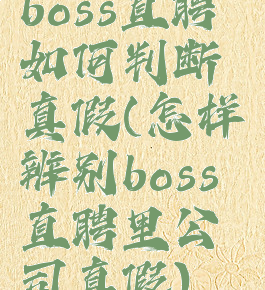 boss直聘
如何判断
真假(怎样
辨别boss
直聘里公
司真假)